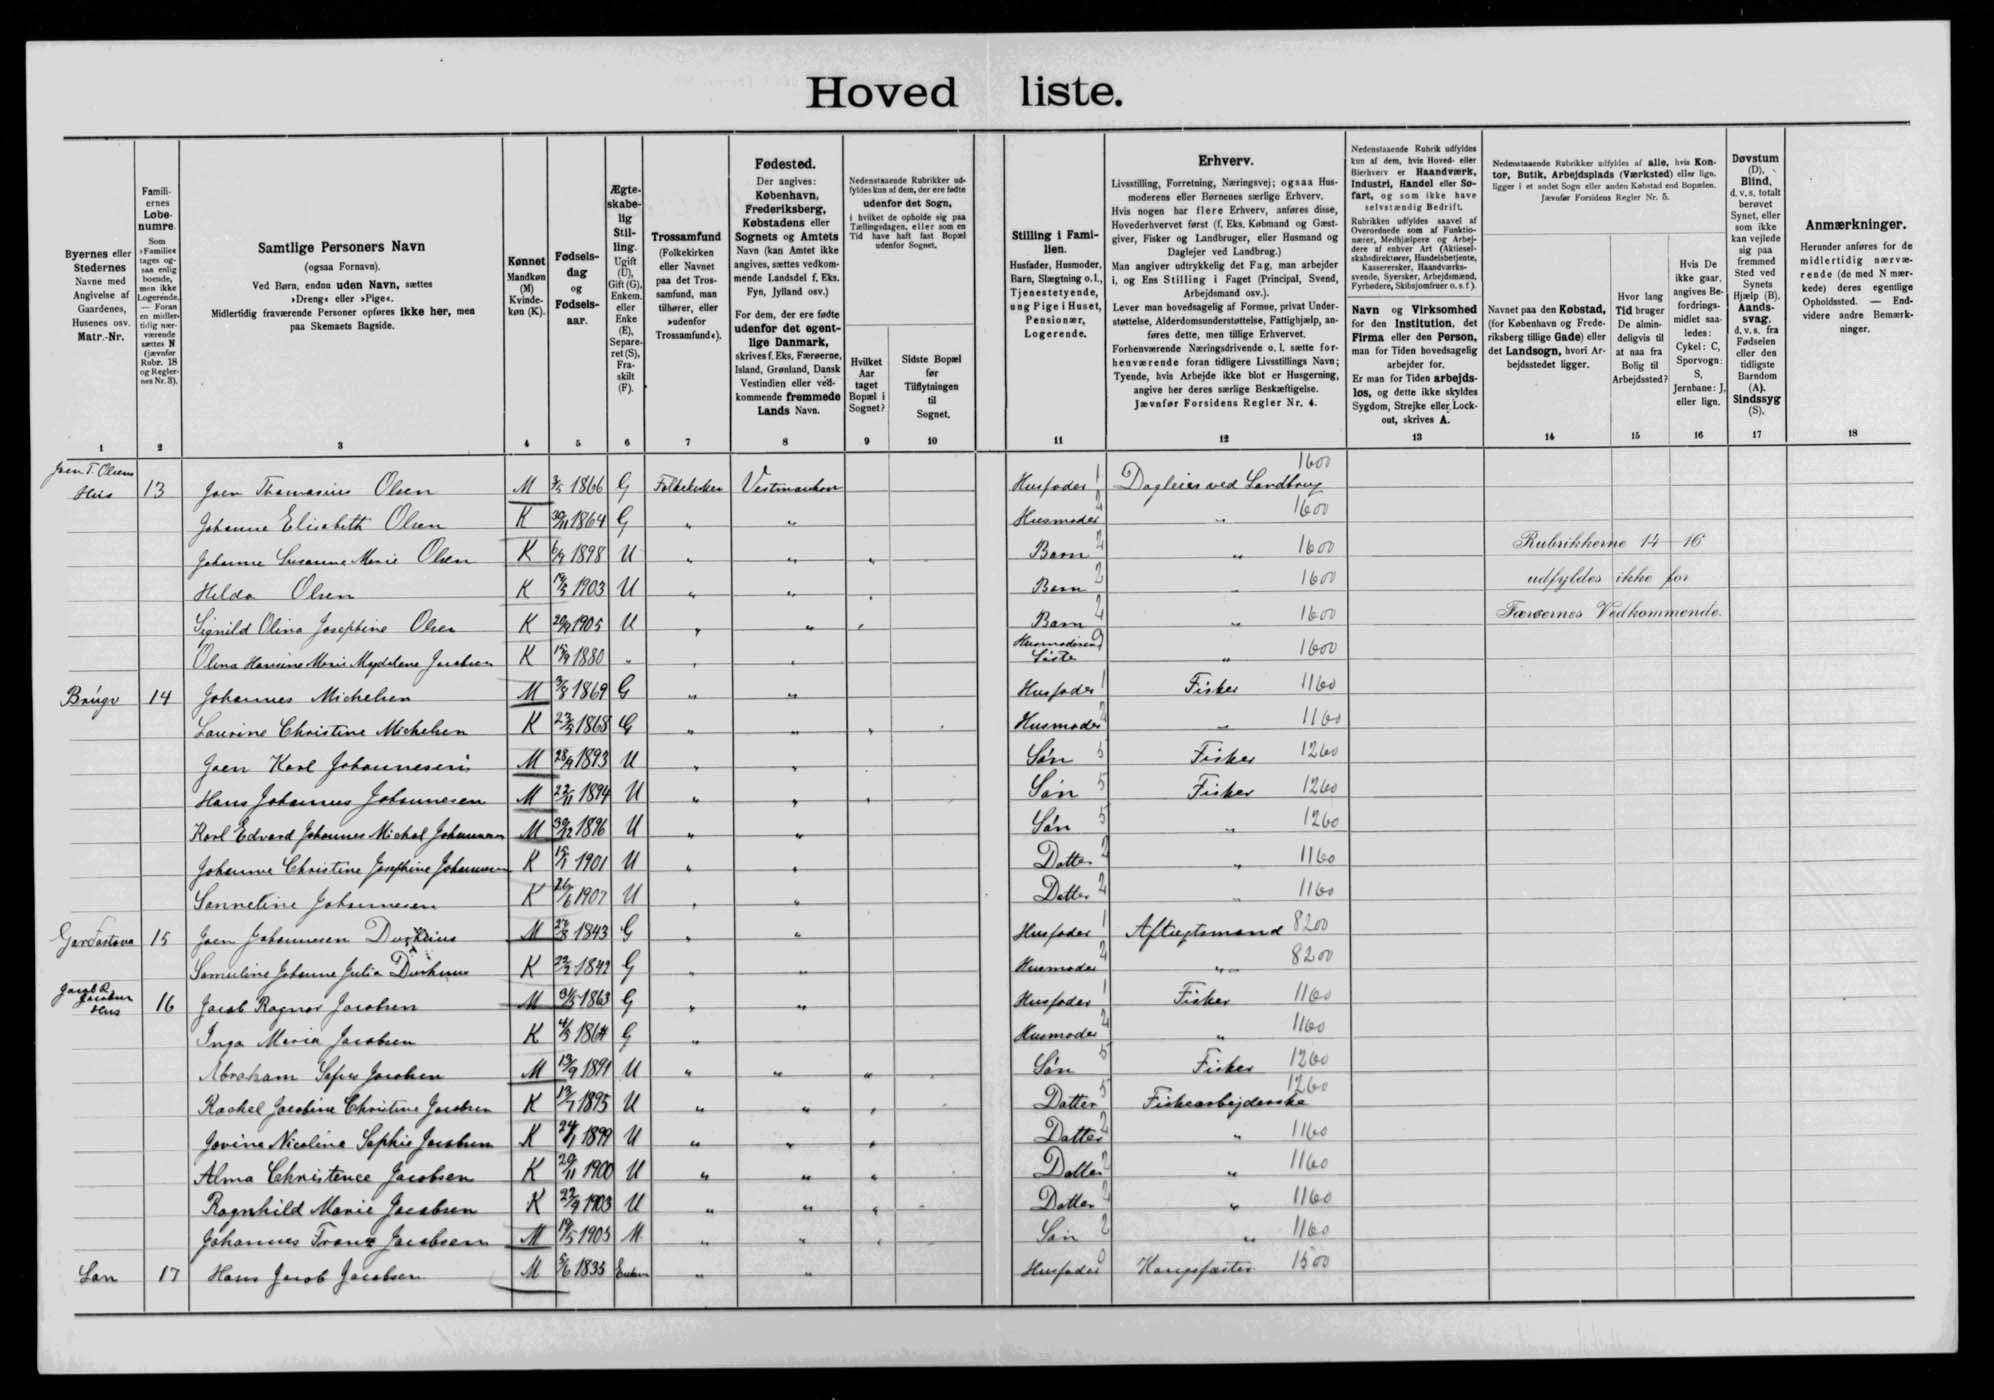 Hoved liste.
Byernes eller Stedernes Navne med Angivelse af Gaardenes, Husenes osv. Matr.-Nr.
Familiernes Løbenumre.
Samtlige Personers Navn
(ogsaa Fornavn).
Ved Børn, endnu uden Navn, sættes
»Dreng« eller »Pige«.
Midlertidig fraværende Personer opføres ikke her, men
paa Skemaets Bagside.
Kønnet
Mandkøn (M) Kvindekøn (K).
Fødselsdag og Fødselsaar.
Ægteskabelig Stilling.
Ugift (U), Gift (G), Enkem. eller Enke (E), Separeret (S), Fraskilt (F).
Trossamfund
(Folkekirken eller Navnet paa det Trossamfund, man tilhører, eller »udenfor Trossamfund«).
Fødested.
Der angives:
København, Frederiksberg, Købstadens eller Sognets og Amtets Navn (kan Amtet ikke angives, sættes vedkommende Landsdel f. Eks. Fyn, Jylland osv.)
For dem, der ere fødte udenfor det egentlige Danmark, skrives f. Eks. Færøerne, Island, Grønland, Dansk Vestindien eller vedkommende fremmede Lands Navn.
Nedenstaaende Rubrikker udfyldes kun af dem, der ere fødte udenfor det Sogn, i hvilket de opholde sig paa Tællingsdagen, eller som en Tid have haft fast Bopæl udenfor Sognet.
Hvilket Aar taget Bopæl i Sognet?
Sidste Bopæl før Tilflytningen til Sognet.
Stilling i Familien.
Husfader, Husmoder, Barn, Slægtning o. l., Tjenestetyende, ung Pige i Huset, Pensionær, Logerende.
Erhverv.
Livsstilling, Forretning, Næringsvej; ogsaa Husmoderens eller Børnenes særlige Erhverv.
Hvis nogen har flere Erhverv, anføres disse, Hovederhvervet først (f. Eks. Købmand og Gæstgiver, Fisker og Landbruger, eller Husmand og Daglejer ved Landbrug.)
Man angiver udtrykkelig det Fag, man arbejder i, og Ens Stilling i Faget (Principal, Svend, Arbejdsmand osv.).
Lever man hovedsagelig af Formue, privat Understøttelse, Alderdomsunderstøttelse, Fattighjælp, anføres dette, men tillige Erhvervet.
Forhenværende Næringsdrivende o. l. sætte forhenværende foran tidligere Livsstillings Navn; Tyende, hvis Arbejde ikke blot er Husgerning, angive her deres særlige Beskæftigelse.
Jævnfør Forsidens Regler Nr. 4.
Nedenstaaende Rubrik udfyldes kun af dem, hvis Hoved- eller Bierhverv er Haandværk, Industri, Handel eller Søfart, og som ikke have selvstændig Bedrift.
Navn og Virksomhed for den Institution, det Firma eller den Person, man for Tiden hovedsagelig arbejder for.
Er man for Tiden arbejdsløs, og dette ikke skyldes Sygdom, Strejke eller Lockout, skrives A.
Nedenstaaende Rubrikker udfyldes af alle, hvis Kontor, Butik, Arbejdsplads (Værksted) eller lign. ligger i et andet Sogn eller anden Købstad end Bopælen.
Jævnfør Forsidens Regler Nr. 5.
Navnet paa den Købstad, (for København og Frederiksberg tillige Gade) eller det Landsogn, hvori Arbejdsstedet ligger.
Hvor lang Tid bruger De almindeligvis til at naa fra Bolig til Arbejdssted?
Hvis De ikke gaar, angives Befordringsmidlet saaledes: Cykel: C, Sporvogn: S, Jernbane: J, eller lign.
Døvstum (D), Blind, d. v. s. totalt berøvet Synet, eller som ikke kan vejlede sig paa fremmed Sted ved Synets Hjælp (B). Aandssvag, d. v. s. fra Fødselen eller den tidligste Barndom (A), Sindssyg (S).
Anmærkninger.
Herunder anføres for de midlertidig nærværende (de med N mærkede) deres egentlige Opholdssted. — Endvidere andre Bemærkninger.
1 2 3 4 5 6 7 8 9 10 11 12 13 14 15 16 17 18
Joen T. Olsens Hus 13 Joen Thomasius Olsen M 1866 G Folkekirken Vestmanhavn Husfader 1 Daglejer ved Landbrug 1600
Johanne Elisabeth Olsen K 30/11 1864 G " " Husmoder 2 " 1600
Johanne Susanne Marie Olsen K 1898 U " " " Barn 2 " 1600 Rubrikkerne 14 - 16
Hilda Olsen K 1903 U " " " Barn 2 " 1600 udfyldes ikke for
Signild Olina Josephine Olsen K 1905 U " " " Barn 2 " 1600 Færøernes Vedkommende.
Olina Hansine Marie Magdalene Jacobsen K 1880 " " " Husmoderens Søster " 1600
14 Johannes Michelsen M 1869 G " " Husfader 1 Fisker 1160
Laurine Christine Michelsen K 1868 G " " " Husmoder 2 " 1160
Joen Karl Johannesen M 1893 U " " Søn 5 Fisker 1260
Hans Johannus Johannesen M 22/11 1894 U " " " Søn 5 Fisker 1260
Karl Edvard Johannes Michal Johannesen M 30/12 1896 U " " Søn 5 " 1260
Johanne Christine Josephine Johannesen K 15/1 1901 U " " Datter 2 " 1160
Sanneline Johannesen K 26/6 1907 U " " Datter 2 " 1160
15 Joen Johannesen M 1843 G " " Husfader 1 Aftægtsmand 8200
Samuline Johanne Julia K 22/2 1842 G " " Husmoder 2 " 8200
Jacob R. Jacobsens Hus 16 Jacob Ragnar Jacobsen M 31/5 1863 G " " Husfader 1 Fisker 1160
Inga Maria Jacobsen K 4/5 1864 G " Husmoder 2 " 1160
Abraham Jacobsen M 1891 U " " " Søn 5 Fisker 1260
Rachel Jacobine Christine Jacobsen K 1895 U " " " Datter 5 Fiskearbejderske 1260
Jovine Nicoline Sophie Jacobsen K 24/1 1899 U " " " Datter 2 " 1160
Alma Christence Jacobsen K 20/11 1900 U " " " Datter 2 " 1160
Ragnhild Marie Jacobsen K 22/9 1903 U " " " Datter 2 " 1160
Johannes Franz Jacobsen M 19/5 1905 M. " " " Søn 2 " 1160
17 Hans Jacob Jacobsen M 5/6 1835 " " Husfader 0 Kongsfæster 1500